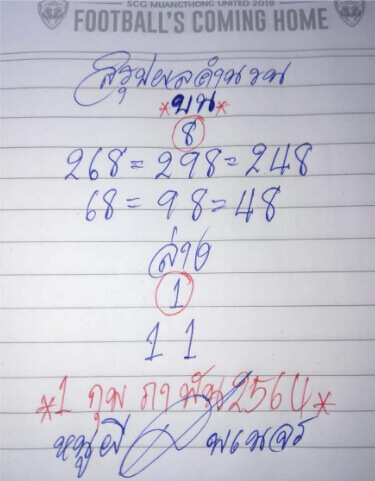 SCG MUANGTHONG UNITED 2019
FOOTBALL'S COMING HOME
สรุปผลคำนวน
*บน*
8
268=298=248
68=98=48
ล่าง
1
11
*1 กุมภาพันธ์ 2564*
หมูผี